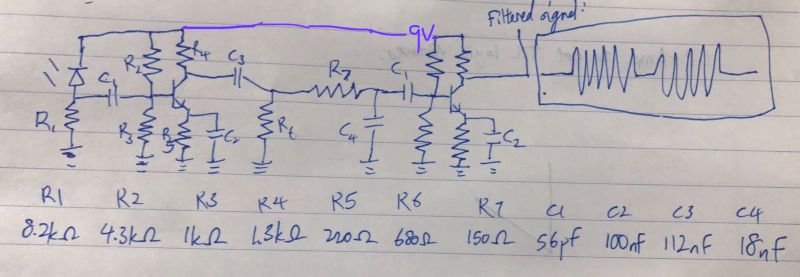 Filtered signal:
9V
R2 R4 C3
C1 R7 C1
R1 R3 R5 C2 R6 C4 C2
R1 R2 R3 R4 R5 R6 R7 C1 C2 C3 C4
8.2kΩ 4.3kΩ 1kΩ 1.3kΩ 220Ω 680Ω 150Ω 56pf 100nF 112nF 18nF